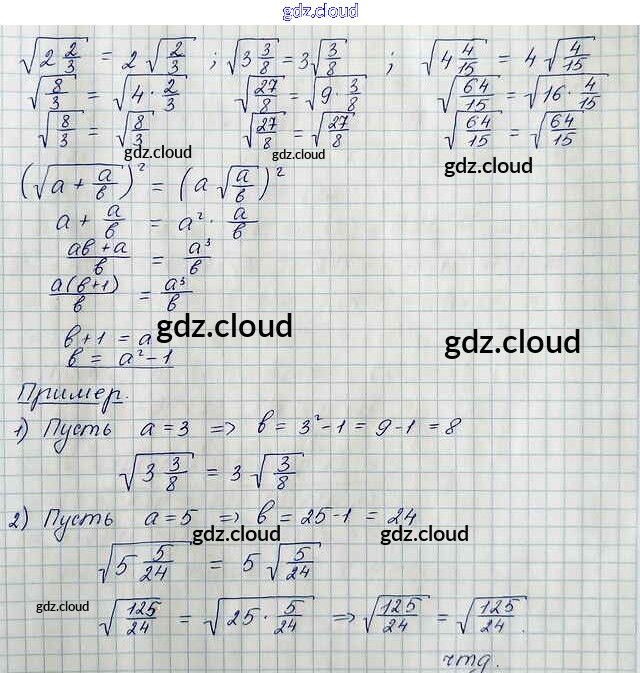 gdz.cloud
√(2 2/3) = 2 √(2/3) ; √(3 3/8) = 3 √(3/8) ; √(4 4/15) = 4 √(4/15)
√(8/3) = √(4 · 2/3) √(27/8) = √(9 · 3/8) √(64/15) = √(16 · 4/15)
√(8/3) = √(8/3) √(27/8) = √(27/8) √(64/15) = √(64/15)
gdz.cloud gdz.cloud gdz.cloud
(√(a + a/в))² = (a √(a/в))²
a + a/в = a² · a/в
(aв + a)/в = a³/в
a(в+1)/в = a³/в
в + 1 = a
gdz.cloud gdz.cloud
в = a² - 1
Пример.
1) Пусть a = 3 => в = 3² - 1 = 9 - 1 = 8
√(3 3/8) = 3 √(3/8)
2) Пусть a = 5 => в = 25 - 1 = 24
gdz.cloud gdz.cloud
√(5 5/24) = 5 √(5/24)
gdz.cloud
√(125/24) = √(25 · 5/24) => √(125/24) = √(125/24).
чтд.